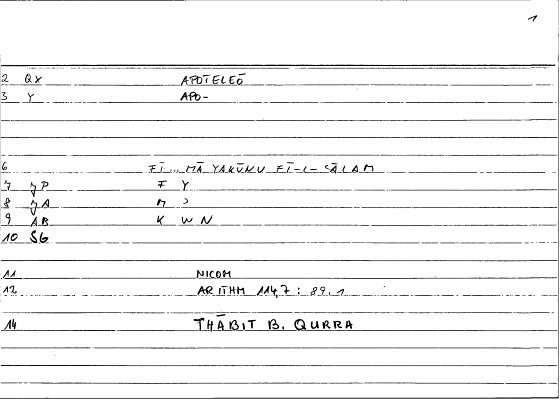 1
2 QX APOTELEŌ
3 Y APO-
6 FĪ... MĀ YAKŪNU FĪ-L-ʿĀLAM
7 JP F Y
8 JA M ʾ
9 AB K W N
10 SG
11 NICOM
12 ARITHM 114,7 : 89.1
14 THĀBIT B. QURRA